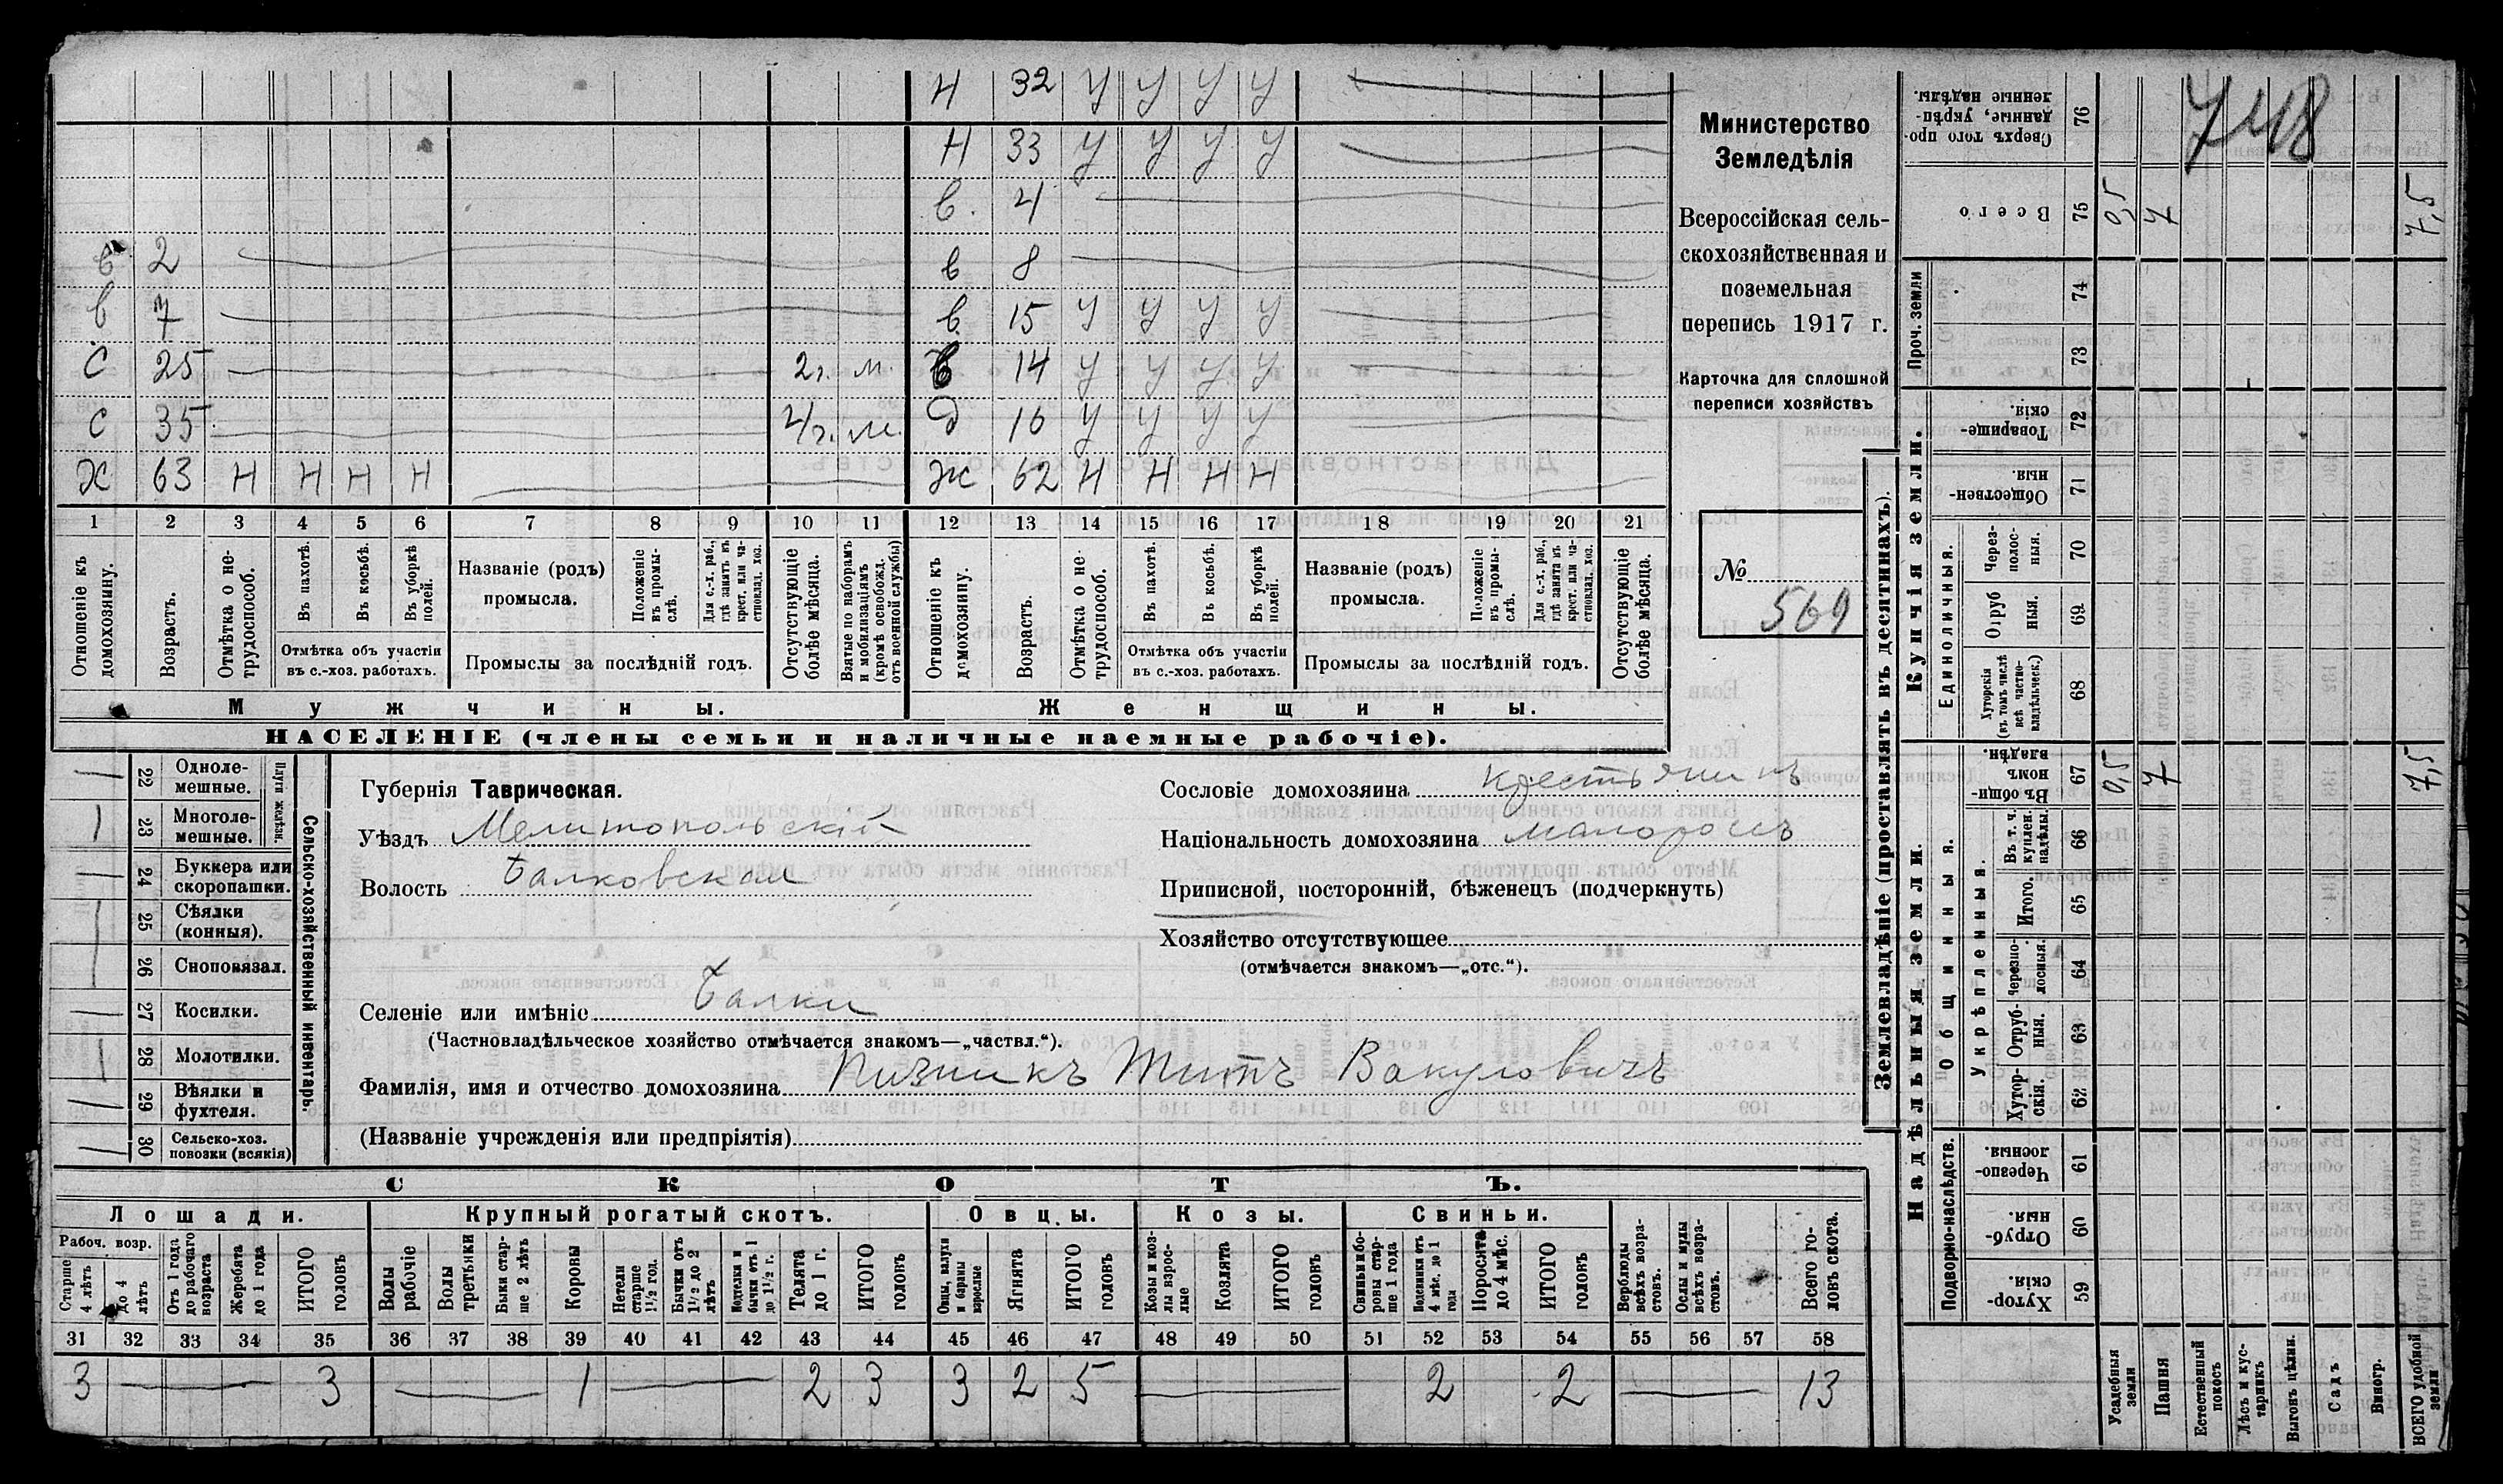 Н 32 У У У У
Н 33 У У У У
в. 4
в 2 в 8
в 7 в 15 У У У У
С 25 2 г. м. в 14 У У У У
С 35 4 г. м. д 16 У У У У
Х 63 Н Н Н Н Ж 62 Н Н Н Н
1 2 3 4 5 6 7 8 9 10 11 12 13 14 15 16 17 18 19 20 21
Отношеніе къ домохозяину.
Возрастъ.
Отмѣтка о не-
трудоспособ.
Въ пахотѣ.
Въ косьбѣ.
Въ уборкѣ полей.
Отмѣтка объ участіи
въ с.-хоз. работахъ.
Названіе (родъ)
промысла.
Положеніе въ промы-
слѣ.
Для с.-х. раб., гдѣ занятъ въ крест. или ча-
стновлад. хоз.
Промыслы за послѣдній годъ.
Отсутствующіе болѣе мѣсяца.
Взятые по наборамъ и мобилизаціямъ (кромѣ освобожд. отъ военной службы)
Отношеніе къ домохозяину.
Возрастъ.
Отмѣтка о не-
трудоспособ.
Въ пахотѣ.
Въ косьбѣ.
Въ уборкѣ полей.
Отмѣтка объ участіи
въ с.-хоз. работахъ.
Названіе (родъ)
промысла.
Положеніе въ промы-
слѣ.
Для с.-х. раб., гдѣ занята въ крест. или ча-
стновлад. хоз.
Промыслы за послѣдній годъ.
Отсутствующіе болѣе мѣсяца.
Мужчины. Женщины.
НАСЕЛЕНІЕ (члены семьи и наличные наемные рабочіе).
Министерство
Земледѣлія
Всероссійская сель-
скохозяйственная и
поземельная
перепись 1917 г.
Карточка для сплошной
переписи хозяйствъ
№
569
22 Одноле-
мешные.
23 Многоле-
мешные.
Плуги желѣзн.
24 Буккера или
скоропашки.
25 Сѣялки
(конныя).
26 Сноповязал.
27 Косилки.
28 Молотилки.
29 Вѣялки и
фухтеля.
30 Сельско-хоз.
повозки (всякія)
Сельско-хозяйственный инвентарь.
Губернія Таврическая.
Уѣздъ Мелитопольскій
Волость Балковская
Сословіе домохозяина крестьянинъ
Національность домохозяина малороссъ
Приписной, посторонній, бѣженецъ (подчеркнуть)
Хозяйство отсутствующее
(отмѣчается знакомъ—„отс.“).
Селеніе или имѣніе Балки
(Частновладѣльческое хозяйство отмѣчается знакомъ—„частвл.“).
Фамилія, имя и отчество домохозяина Пизникъ Титъ Вакуловичъ
(Названіе учрежденія или предпріятія)
СКОТЪ.
Лошади. Крупный рогатый скотъ. Овцы. Козы. Свиньи.
Рабоч. возр.
Старше 4 лѣтъ
до 4 лѣтъ
Отъ 1 года до рабочаго возраста
Жеребята до 1 года
ИТОГО головъ
Волы рабочіе
Волы третьяки
Быки стар-
ше 2 лѣтъ
Коровы
Нетели старше 1½ год.
Бычки отъ 1½ до 2 лѣтъ
Подтелки и бычки отъ 1 до 1½ г.
Телята до 1 г.
ИТОГО головъ
Овцы, валухи и бараны взрослые
Ягнята
ИТОГО головъ
Козы и коз-
лы взрос-
лые
Козлята
ИТОГО головъ
Свиньи и бо-
ровы стар-
ше 1 года
Подсвинки отъ 4 мѣс. до 1 года
Поросята до 4 мѣс.
ИТОГО головъ
Верблюды всѣхъ возра-
стовъ.
Ослы и мулы всѣхъ возра-
стовъ.
Всего го-
ловъ скота.
31 32 33 34 35 36 37 38 39 40 41 42 43 44 45 46 47 48 49 50 51 52 53 54 55 56 57 58
3 3 1 2 3 3 2 5 2 2 13
Землевладѣніе (проставлять въ десятинахъ).
Купчія земли.
Надѣльныя земли.
Сверхъ того про-
данные, укрѣп-
ленные надѣлы.
76
748
Всего
75
0,5 7 7,5
Проч. земли
74
73
Товарище-
скія.
72
Обществен-
ныя
71
Единоличныя.
Через-
полос-
ныя.
70
Отруб
ныя.
69
Хуторскія
(въ томъ числѣ
всѣ частно-
владѣльческ.)
68
Общинныя.
Въ общи-
номъ
владѣн.
67
0,5 7 7,5
Въ т. ч.
куплен.
надѣлы.
66
Укрѣпленныя.
Итого.
65
Черезпо-
лосныя.
64
Отруб-
ныя.
63
Хутор-
скія.
62
Подворно-наслѣдств.
Черезпо-
лосныя.
61
Отруб-
ныя.
60
Хутор-
скія.
59
Усадебныя земли
Пашня
Естественный покосъ
Лѣсъ и кус-
тарникъ
Выгонъ цѣлин.
Садъ
Виногр.
ВСЕГО удобной земли